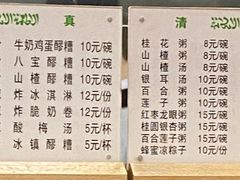 真
牛奶鸡蛋醪糟 10元/碗
八宝醪糟 10元/碗
山楂醪糟 10元/碗
炸冰淇淋 12元/份
炸脆奶卷 12元/份
酸梅汤 5元/杯
冰镇醪糟 5元/杯
清
桂花粥 8元/碗
山楂粥 8元/碗
银耳汤 10元/碗
百合粥 10元/碗
莲子粥 10元/碗
红枣龙眼粥 10元/碗
桂圆银杏粥 10元/碗
百合莲子粥 10元/碗
蜂蜜凉粽子 10元/份